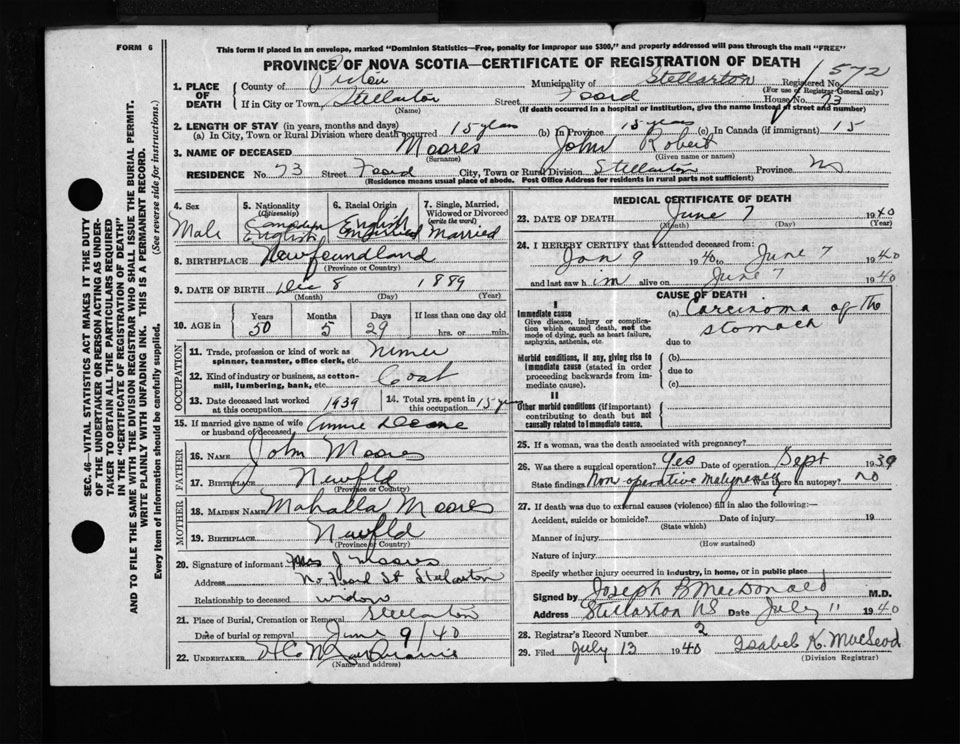 FORM 6
This form if placed in an envelope, marked "Dominion Statistics—Free, penalty for improper use $300," and properly addressed will pass through the mail "FREE"
PROVINCE OF NOVA SCOTIA—CERTIFICATE OF REGISTRATION OF DEATH
1572
1. PLACE OF DEATH
County of Pictou Municipality of Stellarton Registered No.
(For use of Registrar-General only)
If in City or Town Stellarton Street Foord House No. 73
(Name) (If death occurred in a hospital or institution, give the name instead of street and number)
2. LENGTH OF STAY (in years, months and days)
(a) In City, Town or Rural Division where death occurred 15 years (b) In Province 15 years (c) In Canada (if immigrant) 15
3. NAME OF DECEASED Moores John Robert
(Surname) (Given name or names)
RESIDENCE No. 73 Street Foord City, Town or Rural Division Stellarton Province NS
(Residence means usual place of abode. Post Office Address for residents in rural parts not sufficient)
4. Sex Male
5. Nationality (Citizenship) Canadian English
6. Racial Origin English
7. Single, Married, Widowed or Divorced (write the word) Married
8. BIRTHPLACE Newfoundland
(Province or Country)
9. DATE OF BIRTH Dec 8 1889
(Month) (Day) (Year)
10. AGE in Years Months Days If less than one day old
50 5 29 hrs. or min.
OCCUPATION
11. Trade, profession or kind of work as spinner, teamster, office clerk, etc. Miner
12. Kind of industry or business, as cotton-mill, lumbering, bank, etc. Coal
13. Date deceased last worked at this occupation 1939
14. Total yrs. spent in this occupation 15 years
15. If married give name of wife or husband of deceased Annie
FATHER
16. NAME John Moores
17. BIRTHPLACE Newfld
(Province or Country)
MOTHER
18. MAIDEN NAME Mahalla Moores
19. BIRTHPLACE Newfld
(Province or Country)
20. Signature of informant Mrs J Moores
Address No. Foord St Stellarton
Relationship to deceased widow
21. Place of Burial, Cremation or Removal Stellarton
Date of burial or removal June 9/40
22. UNDERTAKER
(Name and address)
MEDICAL CERTIFICATE OF DEATH
23. DATE OF DEATH June 7 1940
(Month) (Day) (Year)
24. I HEREBY CERTIFY that I attended deceased from:
Jan 9 1940 to June 7 1940
and last saw him alive on June 7 1940
CAUSE OF DEATH
I
Immediate cause
Give disease, injury or complication which caused death, not the mode of dying, such as heart failure, asphyxia, asthenia, etc.
(a) Carcinoma of the stomach
due to
Morbid conditions, if any, giving rise to immediate cause (stated in order proceeding backwards from immediate cause).
(b)
due to
(c)
II
Other morbid conditions (if important) contributing to death but not causally related to immediate cause.
25. If a woman, was the death associated with pregnancy?
26. Was there a surgical operation? Yes Date of operation Sept 1939
State findings Non operative malignancy Was there an autopsy? no
27. If death was due to external causes (violence) fill in also the following:—
Accident, suicide or homicide? Date of injury 19
(State which)
Manner of injury
(How sustained)
Nature of injury
Specify whether injury occurred in industry, in home, or in public place
Signed by Joseph B MacDonald M.D.
Address Stellarton NS Date July 11 1940
28. Registrar's Record Number 2
29. Filed July 13 1940 Isabel K. MacLeod
(Division Registrar)
SEC. 46—VITAL STATISTICS ACT MAKES IT THE DUTY
OF THE UNDERTAKER OR PERSON ACTING AS UNDERTAKER TO OBTAIN ALL THE PARTICULARS REQUIRED
IN THE "CERTIFICATE OF REGISTRATION OF DEATH"
AND TO FILE THE SAME WITH THE DIVISION REGISTRAR WHO SHALL ISSUE THE BURIAL PERMIT.
WRITE PLAINLY WITH UNFADING INK. THIS IS A PERMANENT RECORD.
Every item of Information should be carefully supplied. (See reverse side for instructions.)